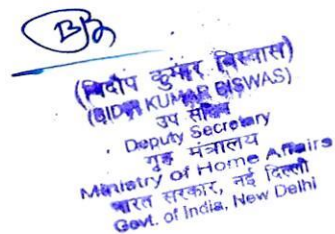 (बिदीप कुमार बिस्वास)
KUMAR BISWAS)
उप सचिव
Deputy Secretary
गृह मंत्रालय
Ministry of Home Affairs
भारत सरकार, नई दिल्ली
Govt. of India, New Delhi